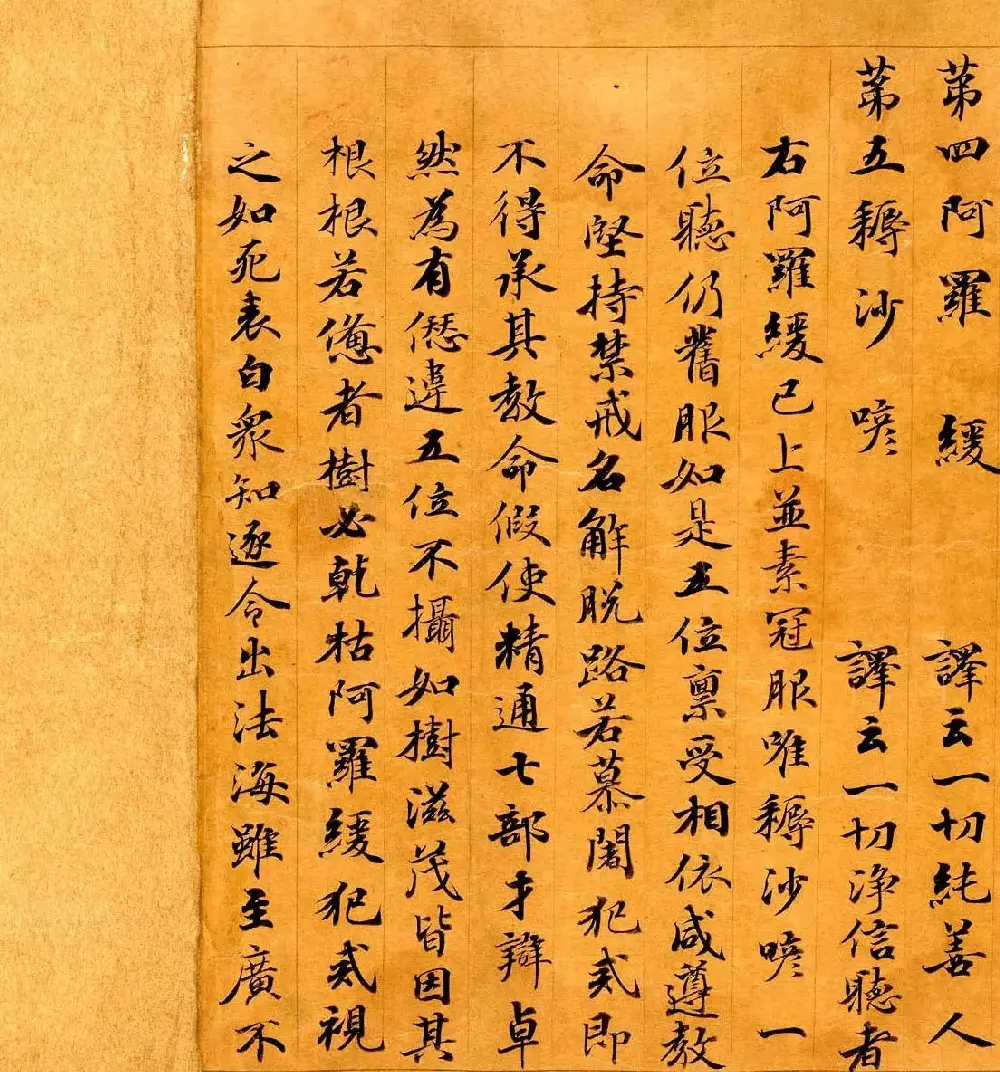 苐四阿羅緩 譯云一切純善人
苐五耨沙喭 譯云一切淨信聽者
右阿羅緩已上並素冠服唯耨沙喭一
位聽仍舊服如是五位禀受相依咸遵教
命堅持禁戒名解脱路若慕闍犯戒即
不得承其教命假使精通七部才辯卓
然為有𠎝違五位不攝如樹滋茂皆因其
根根若憊者樹必乾枯阿羅緩犯戒視
之如死表白衆知逐令出法海雖至廣不